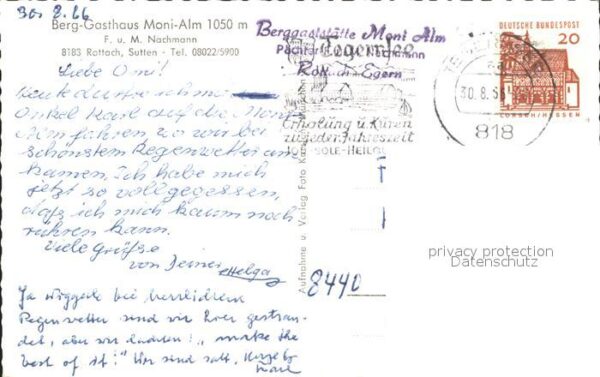 30. 8. 66
Berg-Gasthaus Moni-Alm 1050 m
F. u. M. Nachmann
8183 Rottach, Sutten - Tel. 08022/5900
Liebe Omi!
Heute durfte ich mit
Onkel Karl auf die Moni
Alm fahren, wo wir bei
schönstem Regenwetter an-
kamen. Ich habe mich
jetzt so vollgegessen,
daß ich mich kaum noch
rühren kann.
Viele Grüße
von Deiner Helga
bei herrlichem
Regenwetter sind wir hier gestran-
det, aber wir dachten: „make the
best of it!" Wir sind satt. Herzlich
Berggaststätte Moni Alm
Pächter F. u. M. Nachmann
Rottach-Egern
Tegernsee
Erholung u. Kuren
zu jeder Jahreszeit
JOD-SOLE-HEILQU
TEGERNSEE
30.8.66
818
DEUTSCHE BUNDESPOST
20
LORSCH/HESSEN
Aufnahme u. Verlag Foto
8440
privacy protection
Datenschutz